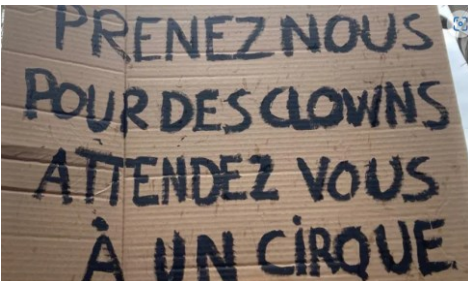 PRENEZ NOUS
POUR DES CLOWNS
ATTENDEZ VOUS
À UN CIRQUE